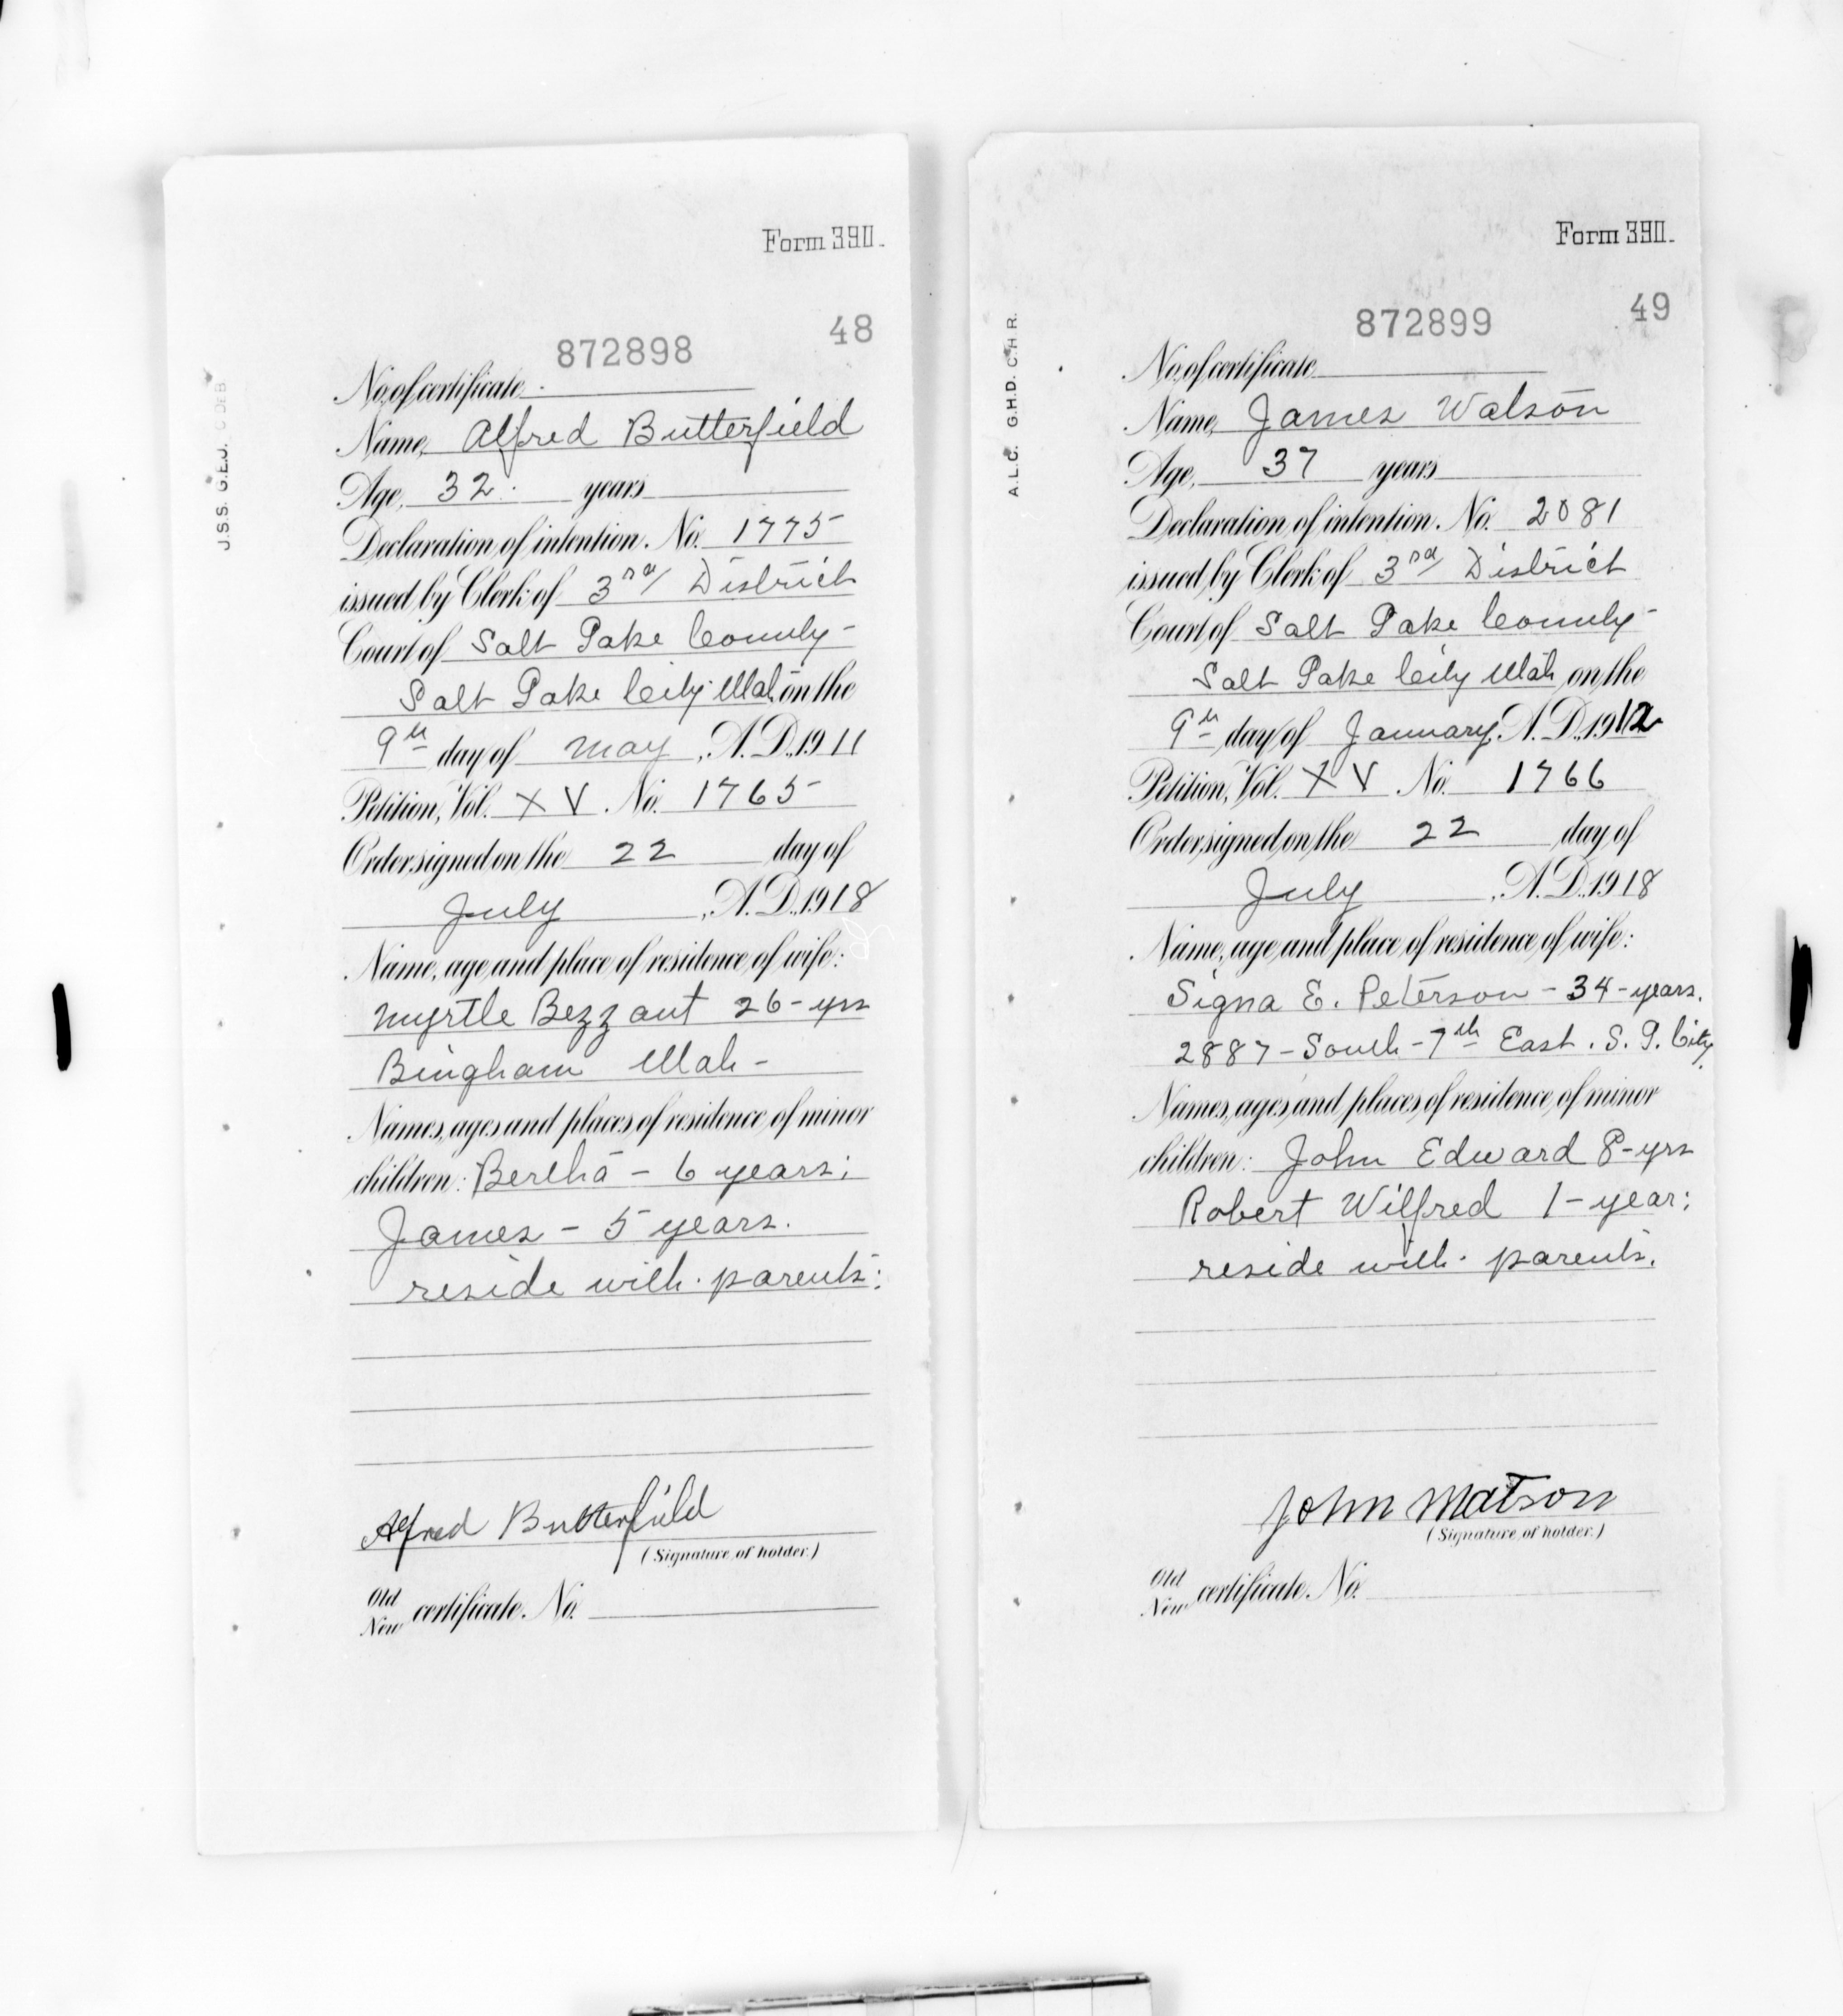 Form 390.
48
872898
No. of certificate
Name, Alfred Butterfield
Age, 32 years
Declaration of intention. No. 1775
issued by Clerk of 3rd District
Court of Salt Lake County
Salt Lake City Utah on the
9th day of May, A.D. 1911
Petition, Vol. XV. No. 1765
Order signed on the 22 day of
July, A.D. 1918
Name, age and place of residence of wife:
Myrtle Bezzant 26 - yrs
Bingham Utah -
Names, ages and places of residence of minor
children: Bertha - 6 years;
James - 5 years.
reside with parents:
Alfred Butterfield
(Signature of holder.)
Old
New certificate. No.
J.S.S. G.E.J.
Form 390.
49
872899
No. of certificate
Name, James Watson
Age, 37 years
Declaration of intention. No. 2081
issued by Clerk of 3rd District
Court of Salt Lake County -
Salt Lake City Utah on the
9th day of January, A.D. 1912
Petition, Vol. XV. No. 1766
Order signed on the 22 day of
July, A.D. 1918
Name, age and place of residence of wife:
Signa E. Peterson - 34 - years.
2887 - South - 7th East. S. L. City.
Names, ages and places of residence of minor
children: John Edward 8 - yrs
Robert Wilfred 1 - year;
reside with parents.
John Matson
(Signature of holder.)
Old
New certificate. No.
A.L.C. G.H.D. C.H.R.